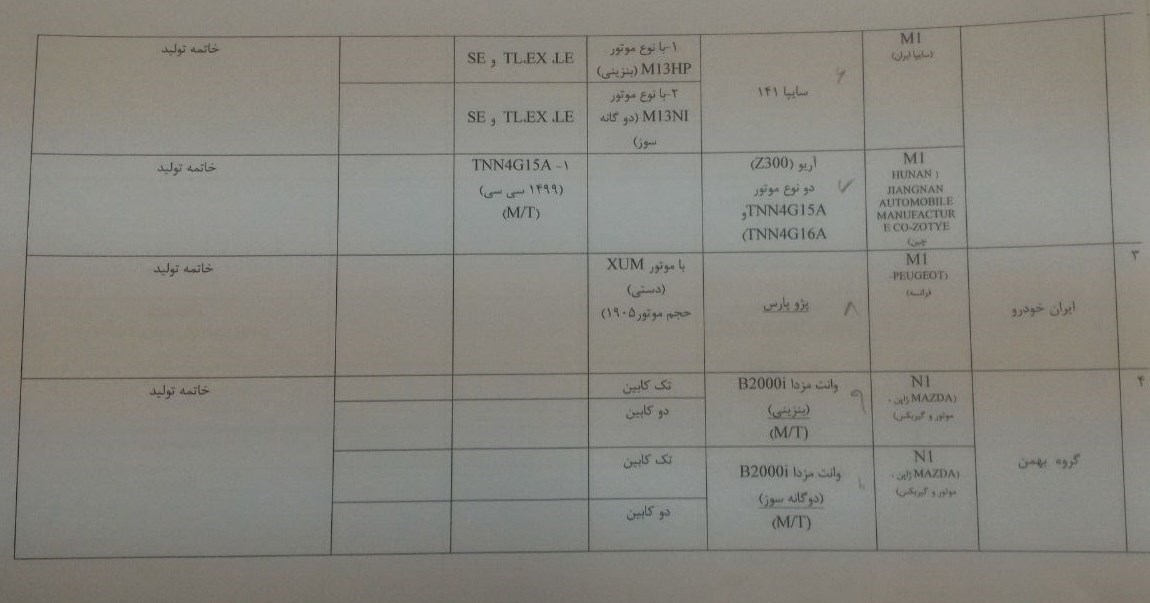 M1
(سایپا ایران)
سایپا ۱۴۱
۶
۱-با نوع موتور
M13HP (بنزینی)
SE و TL،EX ،LE
خاتمه تولید
۲-با نوع موتور
M13NI (دو گانه
سوز)
SE و TL،EX ،LE
M1
HUNAN )
JIANGNAN
AUTOMOBILE
MANUFACTUR
E CO-ZOTYE
چین)
آریو (Z300)
دو نوع موتور
TNN4G15A و
TNN4G16A)
۷
TNN4G15A -۱
(۱۴۹۹ سی سی)
(M/T)
خاتمه تولید
۳
ایران خودرو
M1
PEUGEOT)
فرانسه)
پژو پارس
۸
با موتور XUM
(دستی)
حجم موتور۱۹۰۵)
خاتمه تولید
۴
گروه بهمن
N1
(MAZDA ژاپن ،
موتور و گیربکس)
وانت مزدا B2000i
(بنزینی)
(M/T)
۹
تک کابین
دو کابین
خاتمه تولید
N1
(MAZDA ژاپن ،
موتور و گیربکس)
وانت مزدا B2000i
(دوگانه سوز)
(M/T)
تک کابین
دو کابین